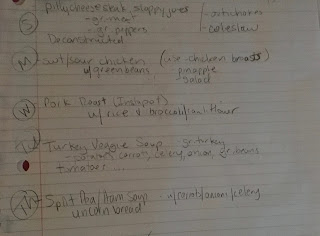 S Philly cheese steak sloppy joes / - artichokes
- gr. meat / - coleslaw
- gr. peppers
Deconstructed
M Swt/sour chicken (use chicken breasts)
w/green beans pineapple
salad
W Pork Roast (Instpot)
w/ rice & broccoli/cauliflower
Tu Turkey Veggie Soup gr. turkey
- potatoes, carrots, celery, onion, gr. beans
tomatoes
TH Split Pea/Ham Soup - w/carrots/onions/celery
w/corn bread